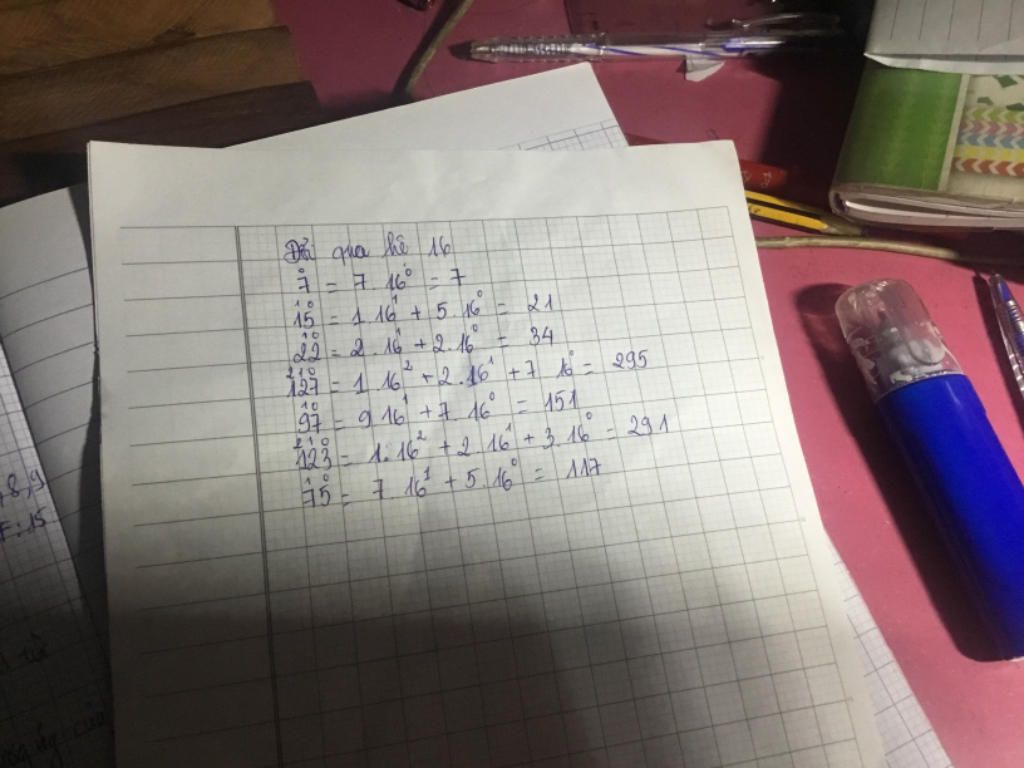 Đổi qua hệ 16
7 = 7.16⁰ = 7
15 = 1.16¹ + 5.16⁰ = 21
22 = 2.16¹ + 2.16⁰ = 34
127 = 1.16² + 2.16¹ + 7 16⁰ = 295
97 = 9.16¹ + 7.16⁰ = 151
123 = 1.16² + 2.16¹ + 3.16⁰ = 291
75 = 7.16¹ + 5.16⁰ = 117
,8,9
F:15